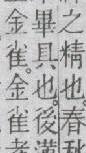 之精也。春秋
畢具也。後滿
金雀。金雀者